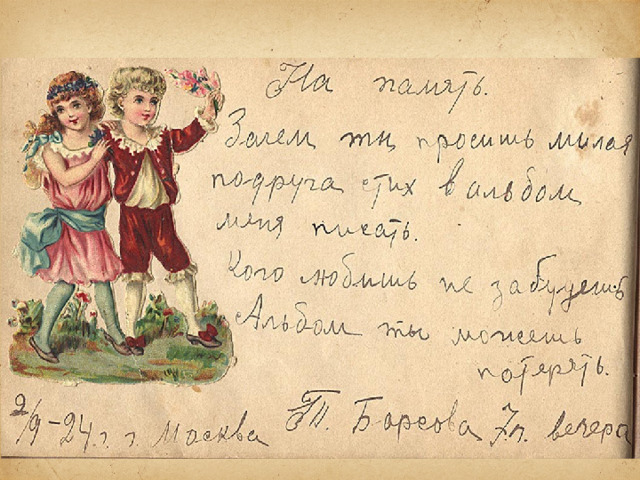 На память.
Зачем ты просишь милая
подруга стих в альбом
меня писать.
Кого любишь не забудешь
Альбом ты можешь
потерять.
2/9-24г. г. Москва Т. Барсова 7 ч. вечера